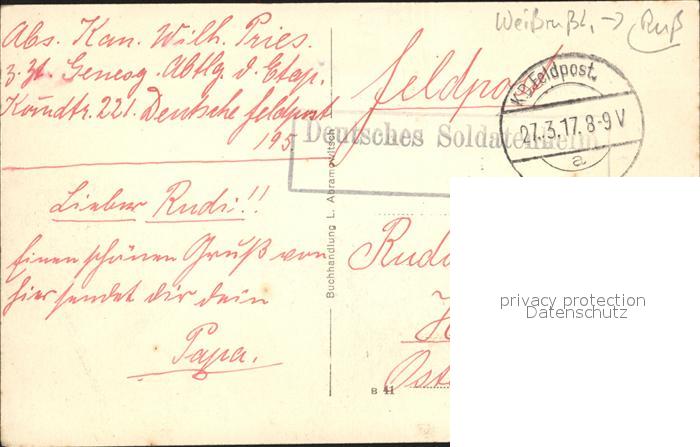 Weißrußl. → Ruß
Abs. Kan. Wilh. Pries.
z. Zt. Genesg. Abtlg d. Etap.
Komdtr. 221. Deutsche Feldpost
195.
Feldpost
K.D. Feldpost.
27.3.17. 8-9 V
a
Deutsches Soldatenheim
Lieber Rudi!!
Einen schönen Gruß von
hier sendet dir dein
Papa.
Buchhandlung L. Abramowitsch
B 41
Rud
H
Ost
privacy protection
Datenschutz